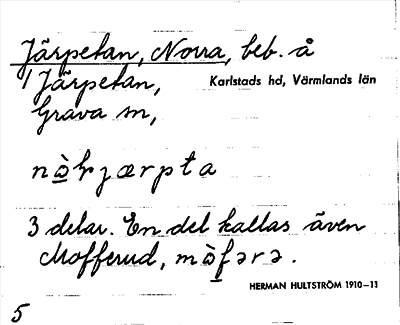 Järpetan, Norra, beb. å
1 Järpetan,
Karlstads hd, Värmlands län
Grava sn,
3 delar. En del kallas även
Mofferud,
HERMAN HULTSTRÖM 1910–13
5